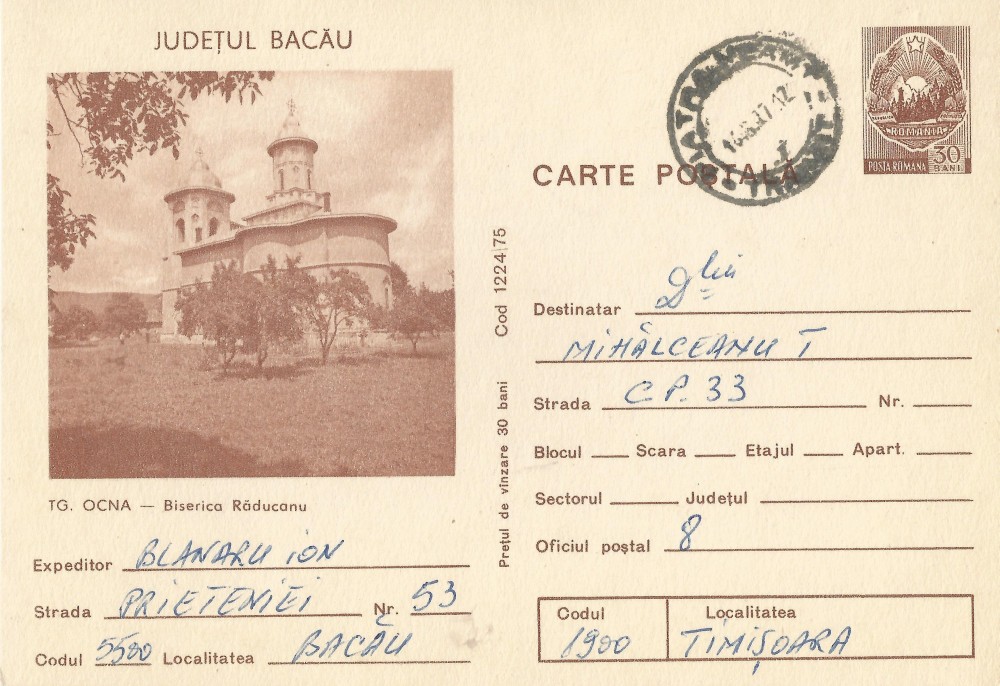 JUDEȚUL BACĂU
TG. OCNA — Biserica Răducanu
Expeditor BLANARU ION
Strada PRIETENIEI Nr. 53
Codul 5500 Localitatea BACĂU
Prețul de vînzare 30 bani Cod 1224/75
ROMANIA
POSTA ROMANA 30 BANI
CARTE POȘTALĂ
Destinatar Dlui
MIHÂLCEANU T
Strada C.P. 33 Nr.
Blocul Scara Etajul Apart.
Sectorul Județul
Oficiul poștal 8
Codul Localitatea
1900 TIMIȘOARA